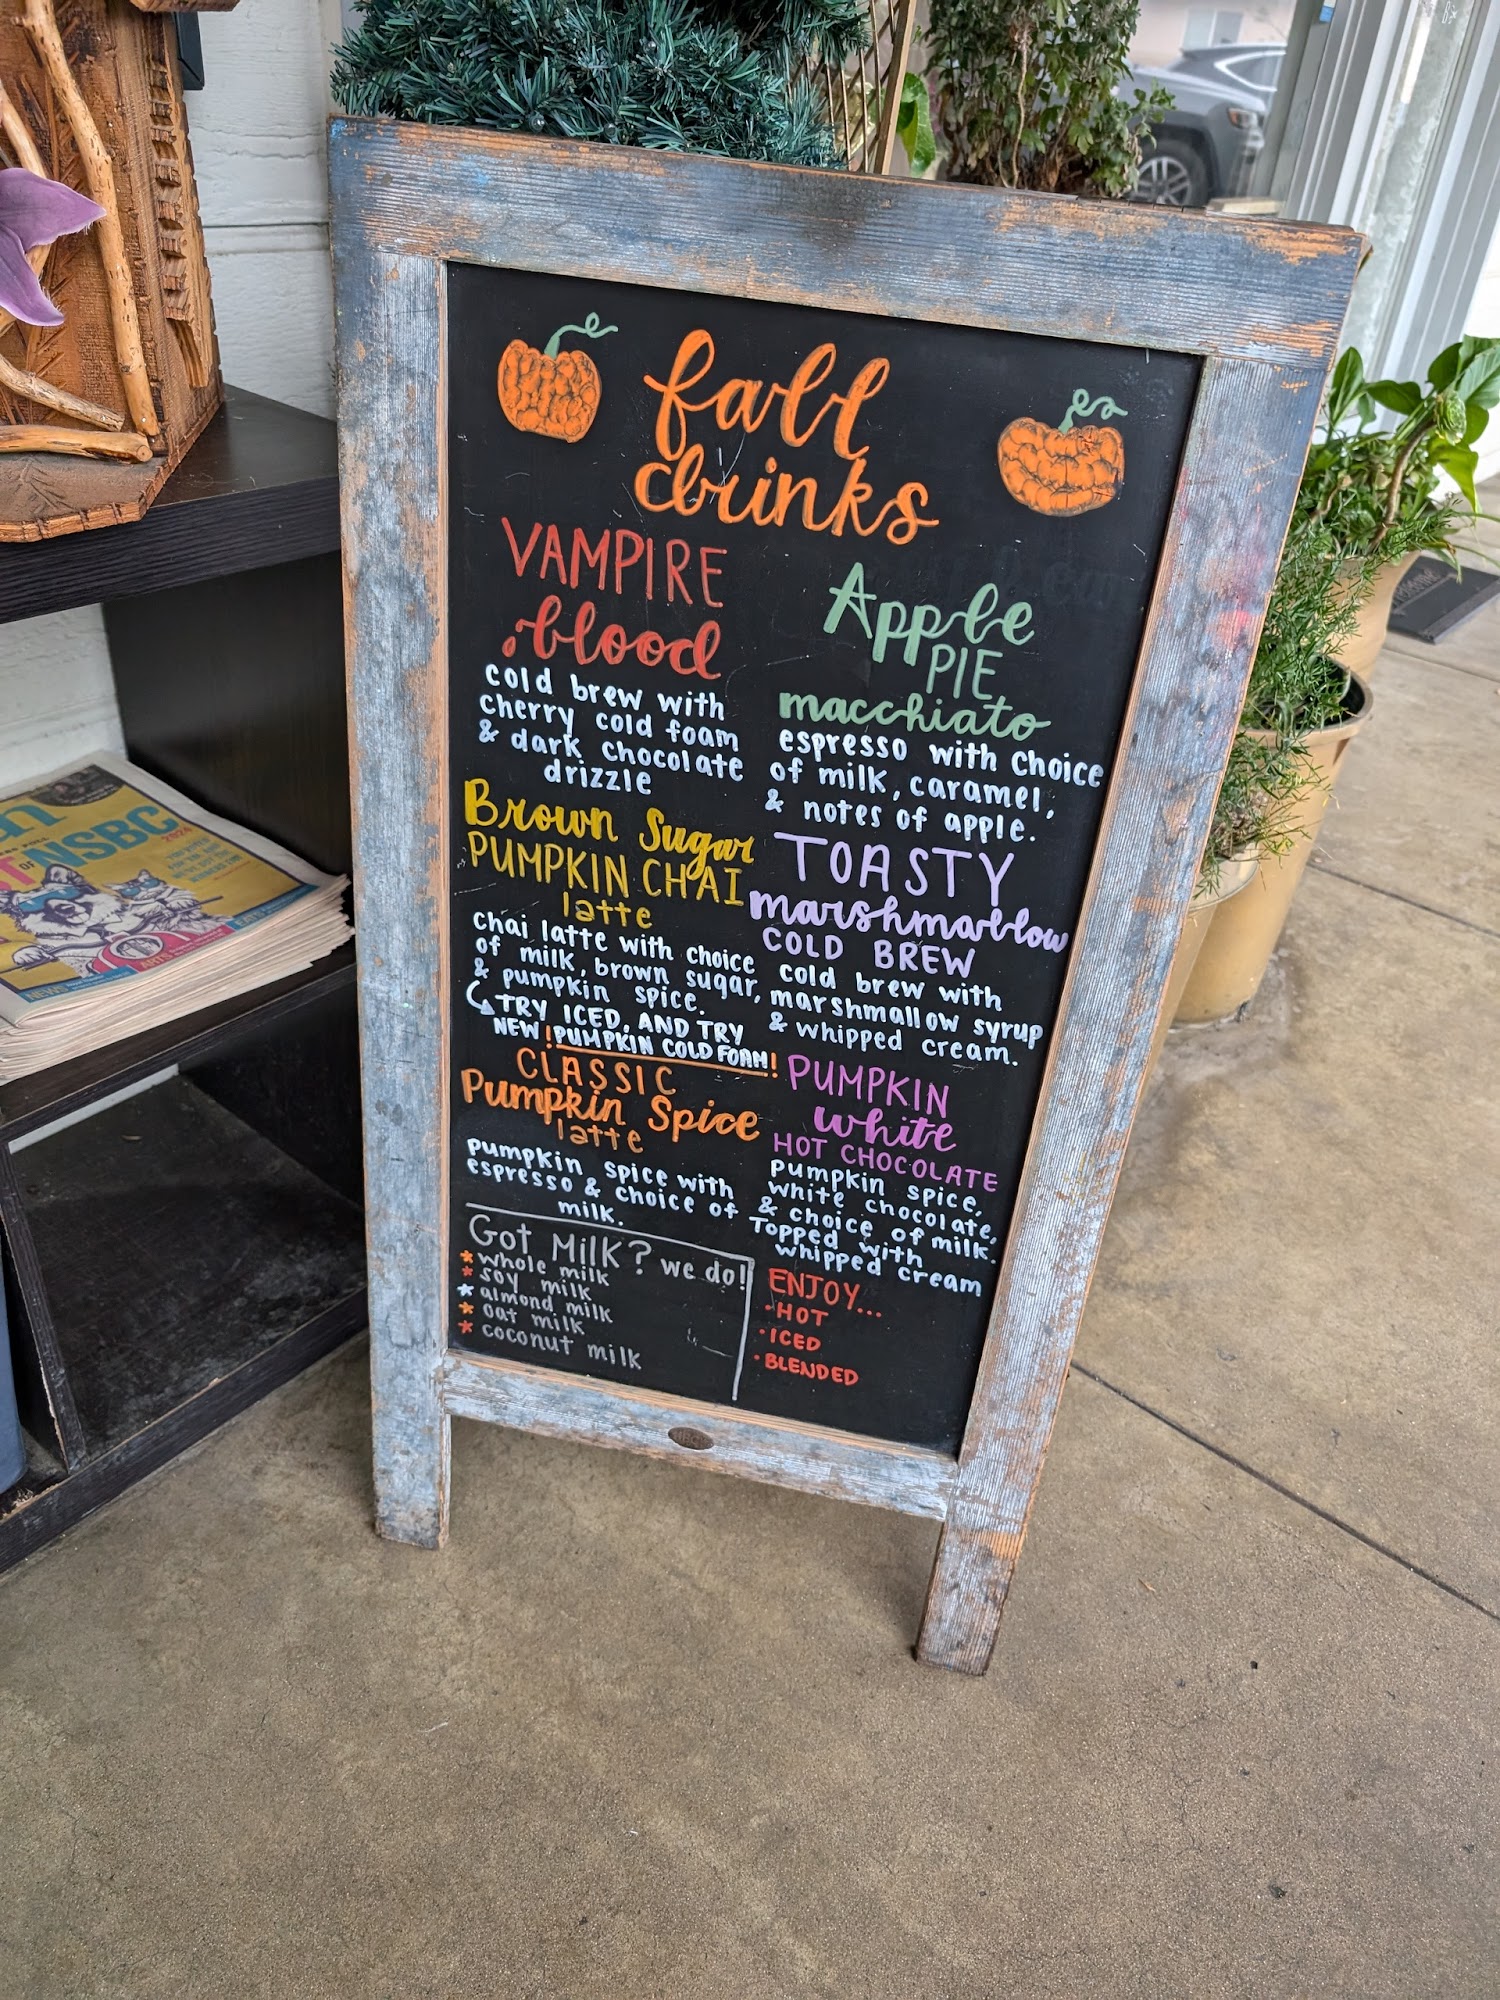 fall
drinks
VAMPIRE
blood
cold brew with
cherry cold foam
& dark chocolate
drizzle
Brown Sugar
PUMPKIN CHAI
latte
chai latte with choice
of milk, brown sugar,
& pumpkin spice.
TRY ICED, AND TRY
NEW !PUMPKIN COLD FOAM!
CLASSIC
Pumpkin Spice
latte
pumpkin spice with
espresso & choice of
milk.
Got Milk? we do!
* whole milk
* soy milk
* almond milk
* oat milk
* coconut milk
Apple
PIE
macchiato
espresso with choice
of milk, caramel,
& notes of apple.
TOASTY
marshmallow
COLD BREW
cold brew with
marshmallow syrup
& whipped cream.
PUMPKIN
white
HOT CHOCOLATE
pumpkin spice,
white chocolate,
& choice of milk.
Topped with
whipped cream
ENJOY...
• HOT
• ICED
• BLENDED
OF NSBC
2024
NEWS